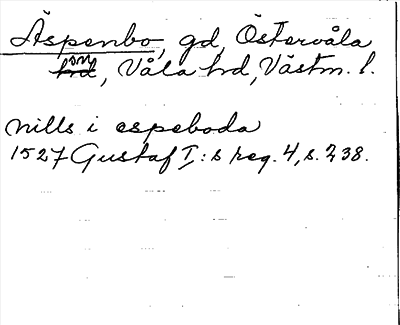 Äspenbo, gd, Östervåla
sn, Våla hd, Västm. l.
nills i espeboda
1527 Gustaf I:s reg. 4, s. 238.